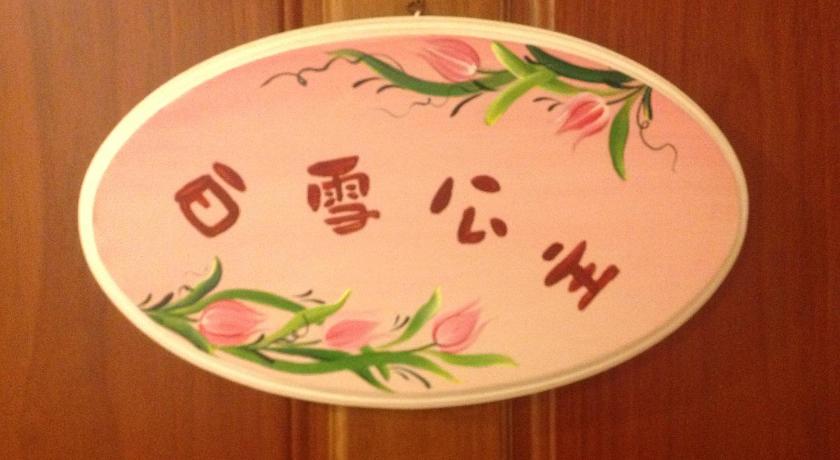 白雪公主